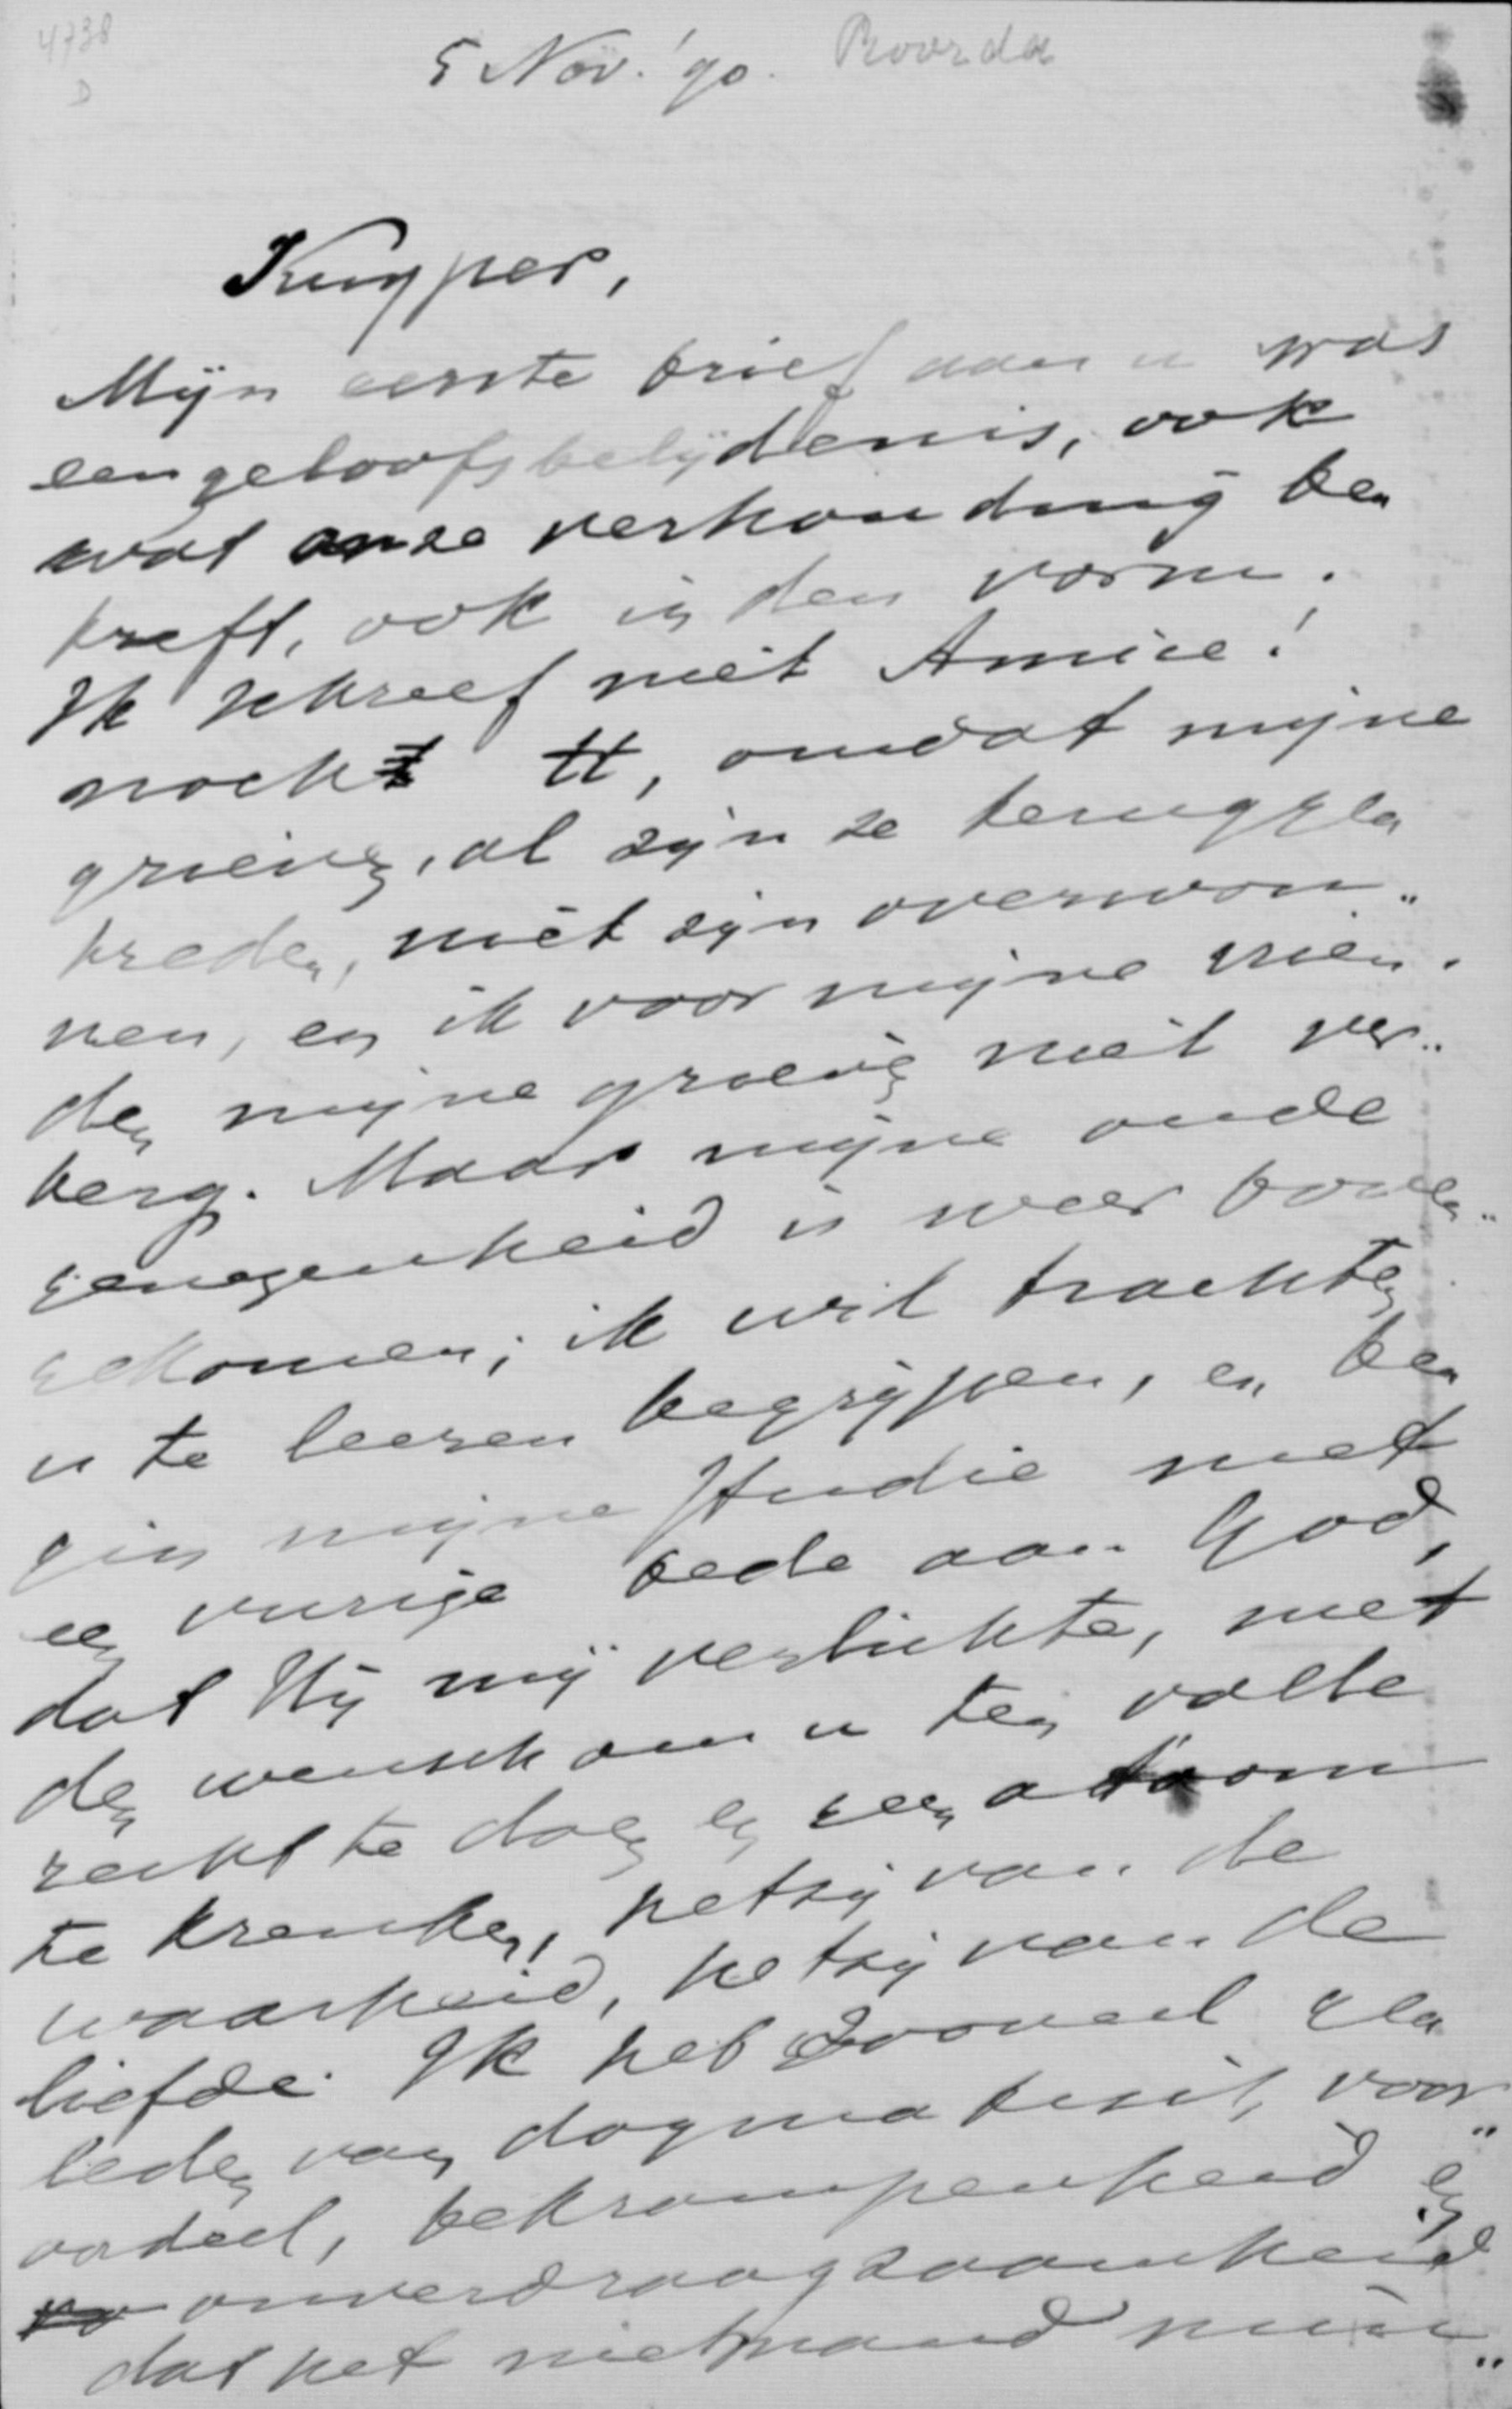 4738
D
5 Nov. '90. Roorda
Kuyper,
Mijn eerste brief aan u was
een geloofsbelijdenis, ook
wat onze verhouding be
treft, ook in den vorm.
Ik schreef niet Amice!
noch tt, omdat mijne
grieven, al zijn ze teruggela
treden, niet zijn overwon„
nen, en ik voor mijne vrien„
den mijne grieven niet ver„
berg. Maar mijne oude
genegenheid is weer boven„
gekomen; ik wil trachten
u te leeren begrijpen, en be
gin mijne studie met
een vurige bede aan God,
dat Hij mij verlichte, met
den wensch om u ten volle
recht te doen en geen atoom
te krenken, hetzij van de
waarheid, hetzij van de
liefde. Ik heb zooveel gele
leden van dogmatisit, voor„
oordeel, bekrompenheid en
onverdraagzaamheid
dat het niemand min„